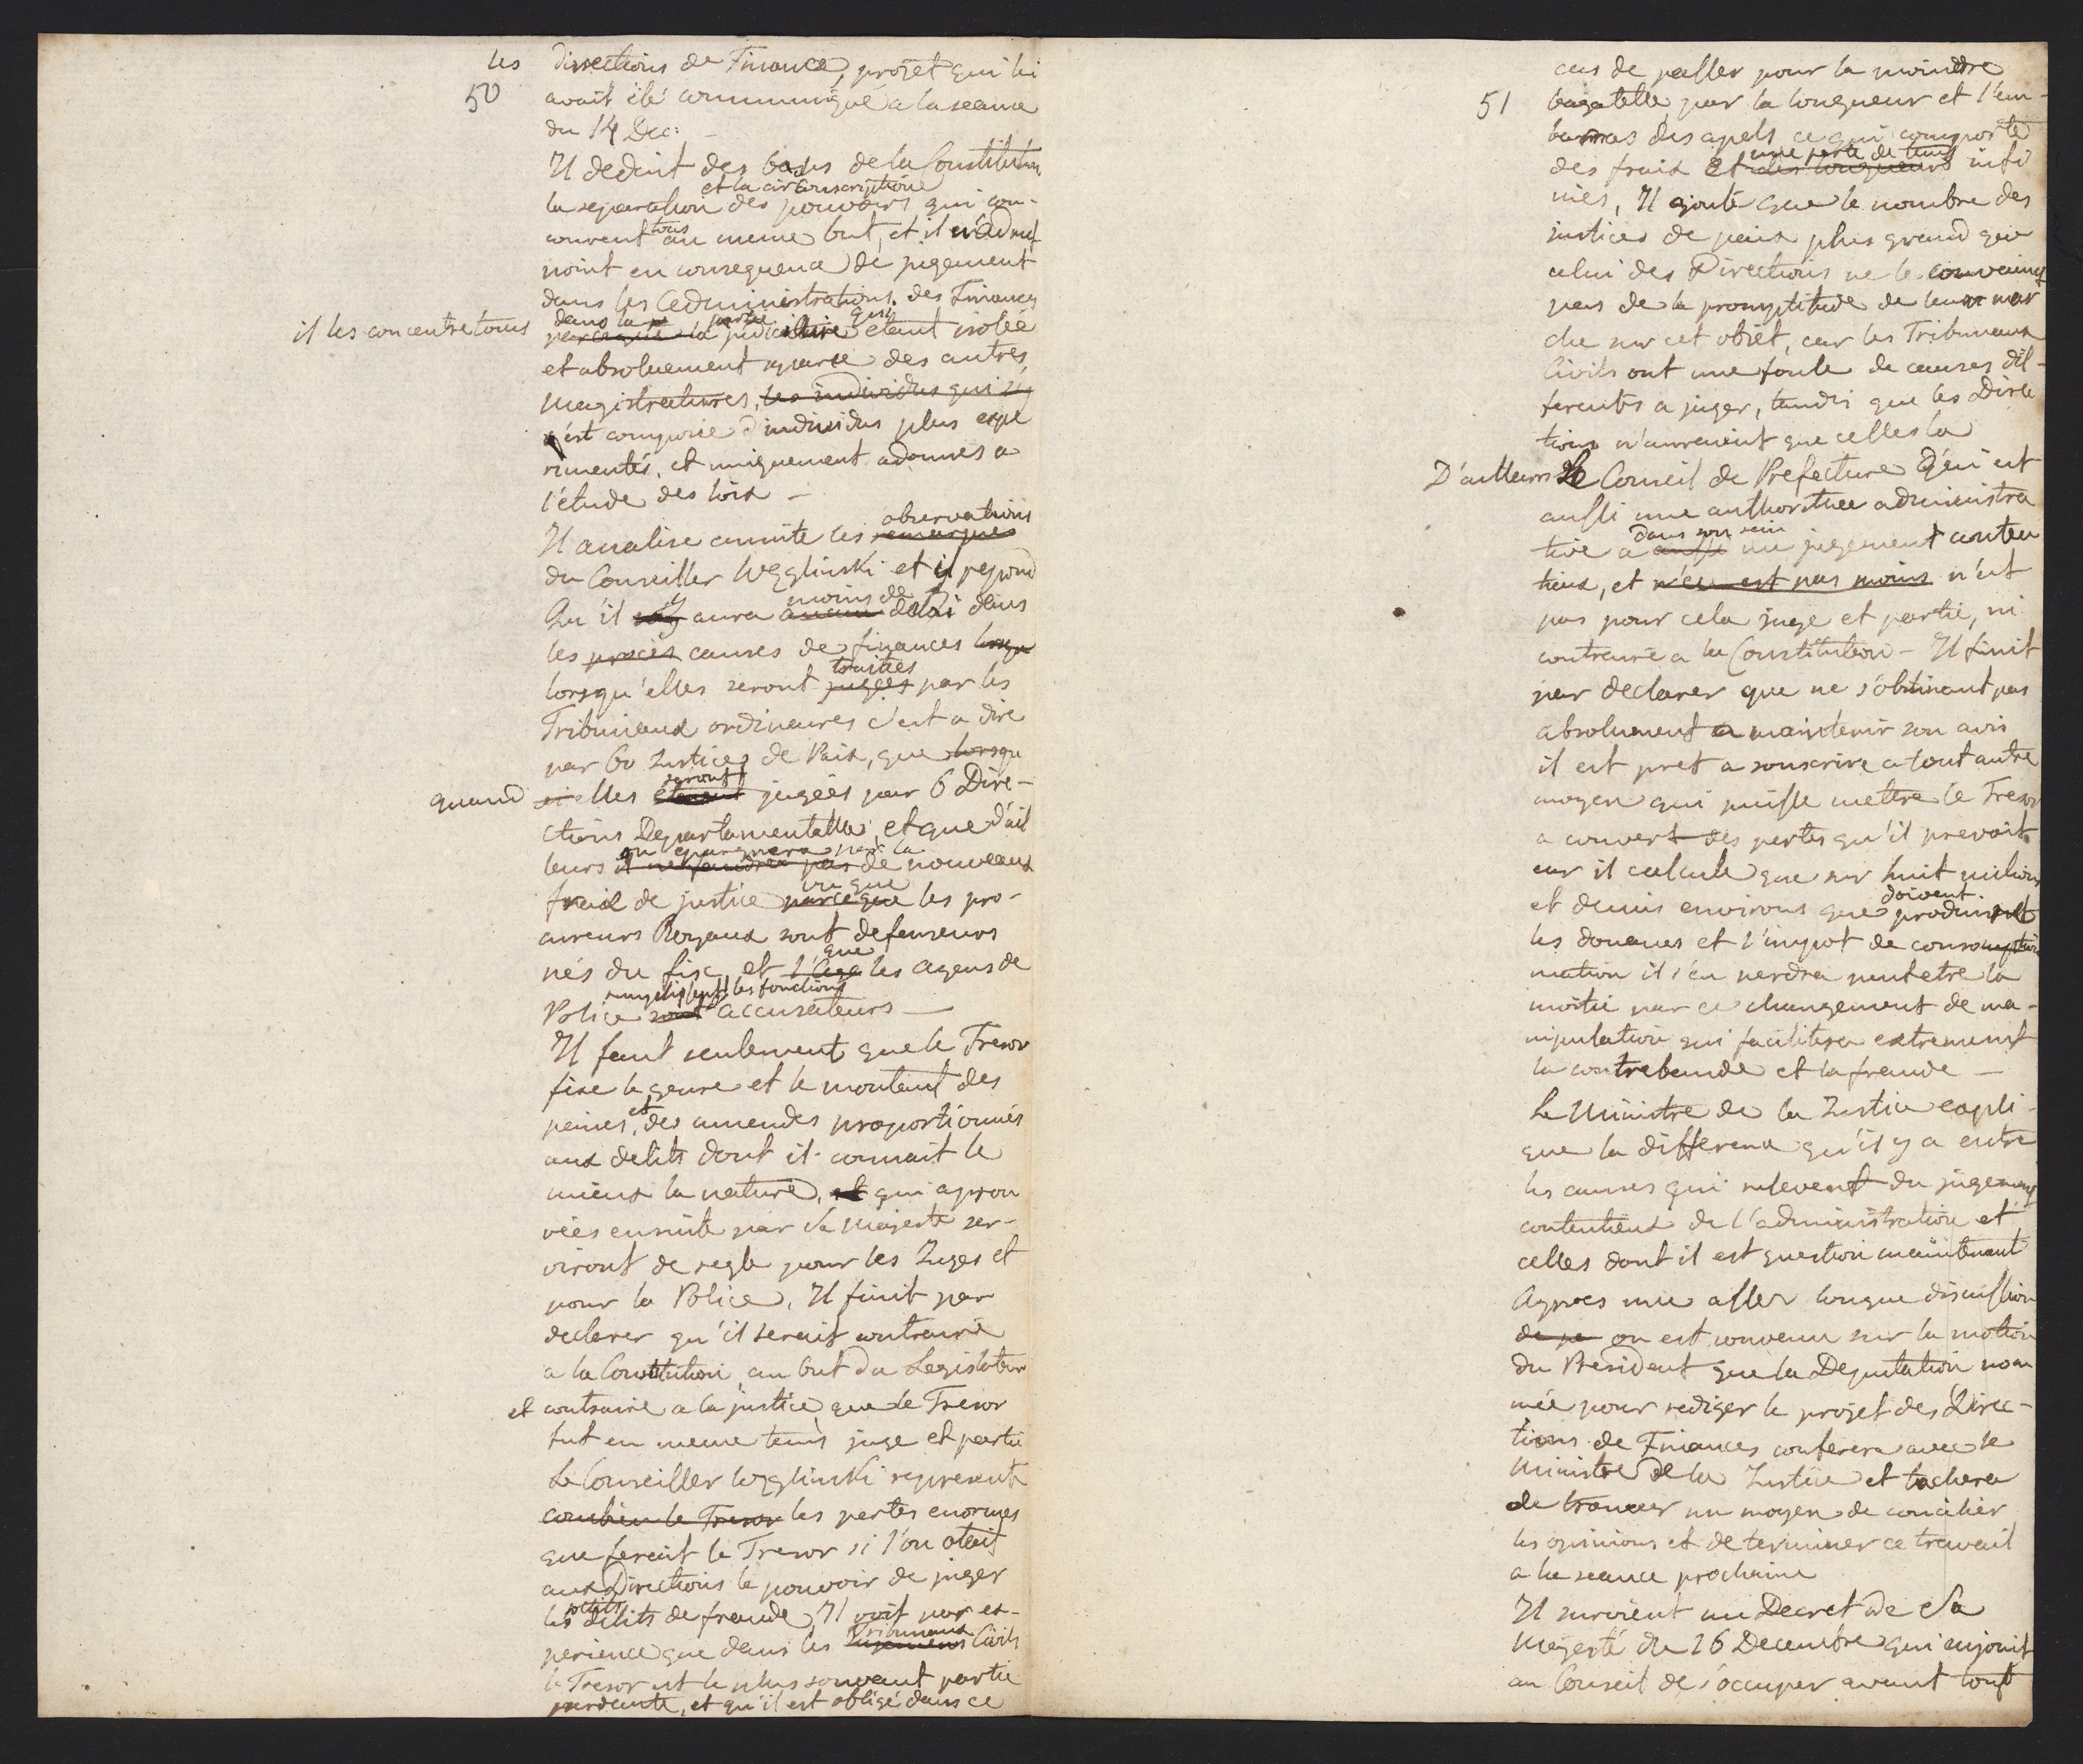 les directions de Finance, projet qui lui
50 avait été communiqué a la seance
du 14 Dec: –
Il deduit des bases de la Constitution
et la circonscription
la separation des pouvoirs qui con-
courent tous au meme but, et il n'admet
point en consequence de jugement
dans les administrations des Finances
il les concentre tous dans la partie qui
parceque la judiciaire etant isolée
et absoluement separée des autres
magistratures, les individus qui s'y
s'est composée d'individus plus expe
rimentés, et uniquement adonnés a
l'étude des loix –
observations
Il analise ensuite les remarques
du Conseiller Węgliński et y repond
moins de
Qu'il y aura aucun delai dans
les procès causes de finances lorsqu
lorsqu'elles seront traitées jugées par les
Tribunaux ordinaires c'est a dire
par 60 Justices de Paix, que lorsqu
quand si elles seront étaient jugées par 6 Dire-
ctions Departamentales, et que d'ail
on epargnera par la
leurs il ne faudra pas de nouveaux
vu que
fraix de justice parceque les pro-
cureurs Royaux sont defenseurs
que
nés du fisc, et l'Age les agens de
remplissent les fonctions
Police sont accusateurs –
Il faut seulement que le Tresor
fixe le genre et le montant des
peines, et des amendes proportionnés
aux delits dont il connait le
mieux la nature, et qui aprou
vées ensuite par Sa Majesté ser-
viront de regle pour les Juges et
pour la Police. Il finit par
declarer qu'il serait contraire
a la Constitution, au but du Legislateur
et contraire a la justice, que le Tresor
fut en meme tems juge et partie
Le Conseiller Węgliński represente
combien le Tresor les pertes enormes
que ferait le Tresor si l'on otait
aux Directions le pouvoir de juger
les petits delits de fraude, Il voit par ex-
Tribunaux
perience que dans les Jugemens Civils
le Tresor est le plus souvent partie
perdante, et qu'il est obligé dans ce
cas de passer pour la moindre
51 bagatelle par la longueur et l'em-
barras des apels ce qui comporte
une perte de tems
des fraix et des longueurs infi
nies, Il ajoute que le nombre des
justices de paix plus grand que
celui des Directions ne le convainct
pas de la promptitude de leur mar
che sur cet objêt, car les Tribunaux
Civils ont une foule de causes dif-
ferentes a juger, tandis que les Direc
tions n'auraient que celles la
D'ailleurs Le Conseil de Prefecture qui est
aussi une authorithée administra
dans son sein
tive a aussi un jugement conten
tieux, et n'en est pas moins n'est
pas pour cela juge et partie, ni
contraire a la Constitution – Il finit
par declarer que ne s'obstinant pas
absolument a maintenir son avis
il est pret a souscrire a tout autre
moyen qui puisse mettre le Tresor
a couvert des pertes qu'il prevoit
car il calcule que sur huit milions
doivent
et demis environs que produisent
les douanes et l'impot de consomption
mation il s'en perdra peutetre la
moitié par ce changement de ma-
nipulation qui facilitera extrement
la contrebande et la fraude –
Le Ministre de la Justice expli-
que la difference qu'il y a entre
les causes qui relevent du jugement
contentieux de l'administration et
celles dont il est question maintenant
Apres une assez longue discussion
de pe on est convenu sur la motion
du President que la Deputation nom
mée pour rediger le projet des Direc-
tions de Finances conferera avec le
Ministre de la Justice et tachera
de trouver un moyen de concilier
les opinions et de terminer ce travail
a la seance prochaine
Il survient un Decret de Sa
Majesté du 16 Decembre qui enjoint
au Conseil de s'occuper avant tout